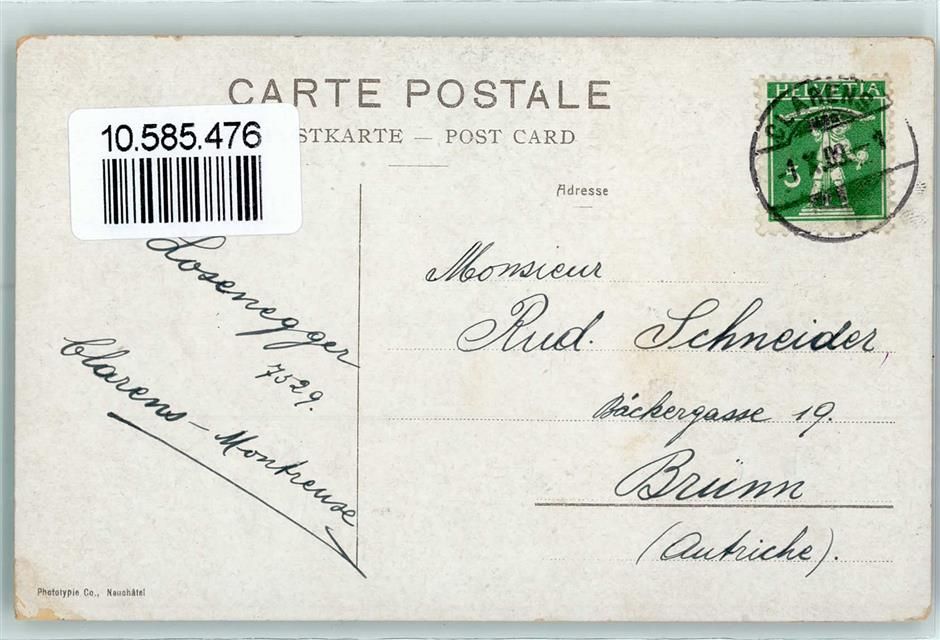 CARTE POSTALE
10.585.476
STKARTE — POST CARD
HELVETIA
CLARENS
5
Adresse
Losenegger
7529.
Clarens – Montreuse
Monsieur
Rud. Schneider
Bäckergasse 19.
Brünn
(Autriche).
Phototypie Co., Neuchâtel